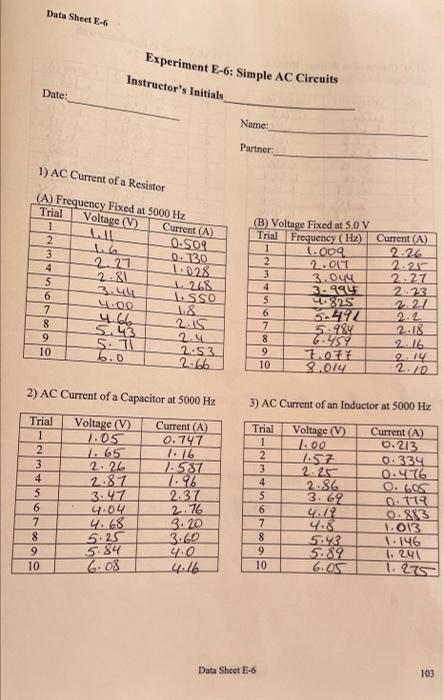 Data Sheet E-6
Experiment E-6: Simple AC Circuits
Instructor's Initials
Date:
Name:
Partner:
1) AC Current of a Resistor
(A) Frequency Fixed at 5000 Hz
Trial Voltage (V) Current (A)
1 1.11 0.509
2 1.6 0.730
3 2.27 1.028
4 2.81 1.268
5 3.44 1.550
6 4.00 1.8
7 4.66 2.15
8 5.43 2.4
9 5.71 2.53
10 6.0 2.66
(B) Voltage Fixed at 5.0 V
Trial Frequency (Hz) Current (A)
1 1.009 2.26
2 2.017 2.25
3 3.044 2.27
4 3.994 2.23
5 4.825 2.21
6 5.491 2.2
7 5.984 2.18
8 6.459 2.16
9 7.077 2.14
10 8.014 2.10
2) AC Current of a Capacitor at 5000 Hz
Trial Voltage (V) Current (A)
1 1.05 0.747
2 1.65 1.16
3 2.26 1.587
4 2.87 1.96
5 3.47 2.37
6 4.04 2.76
7 4.68 3.20
8 5.25 3.60
9 5.84 4.0
10 6.08 4.16
3) AC Current of an Inductor at 5000 Hz
Trial Voltage (V) Current (A)
1 1.00 0.213
2 1.57 0.334
3 2.25 0.476
4 2.86 0.605
5 3.69 0.779
6 4.19 0.883
7 4.8 1.013
8 5.43 1.146
9 5.89 1.241
10 6.05 1.275
Data Sheet E-6
103